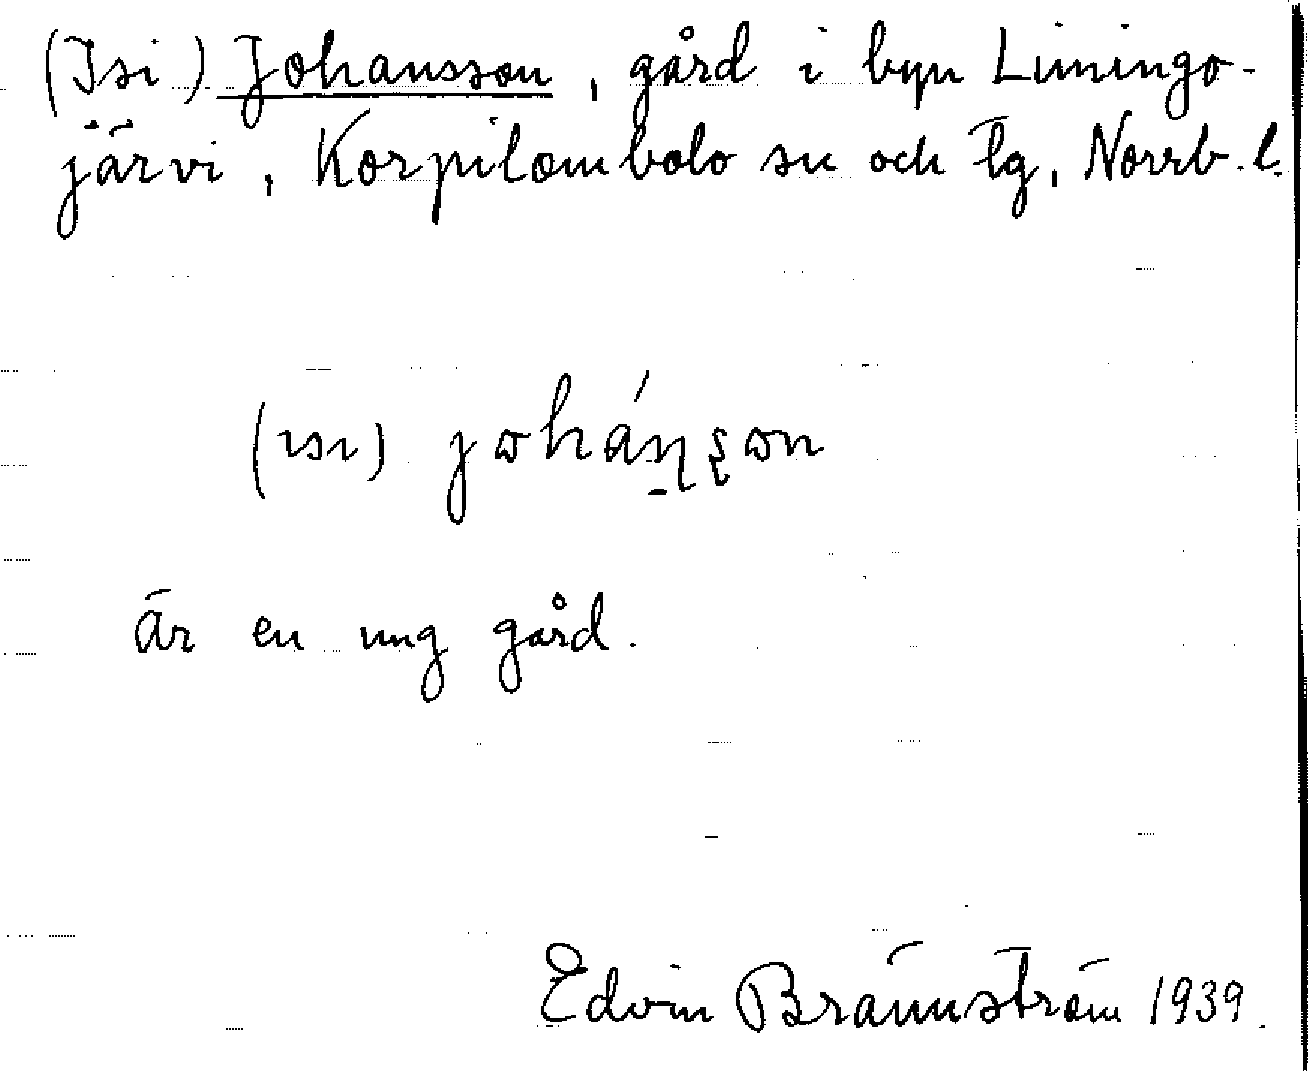 (Isi) Johansson, gård i byn Limingo-
järvi, Korpilombolo sn och tg, Norrb. l.
(ısı) johánson
är en ung gård.
Edvin Brännström 1939.